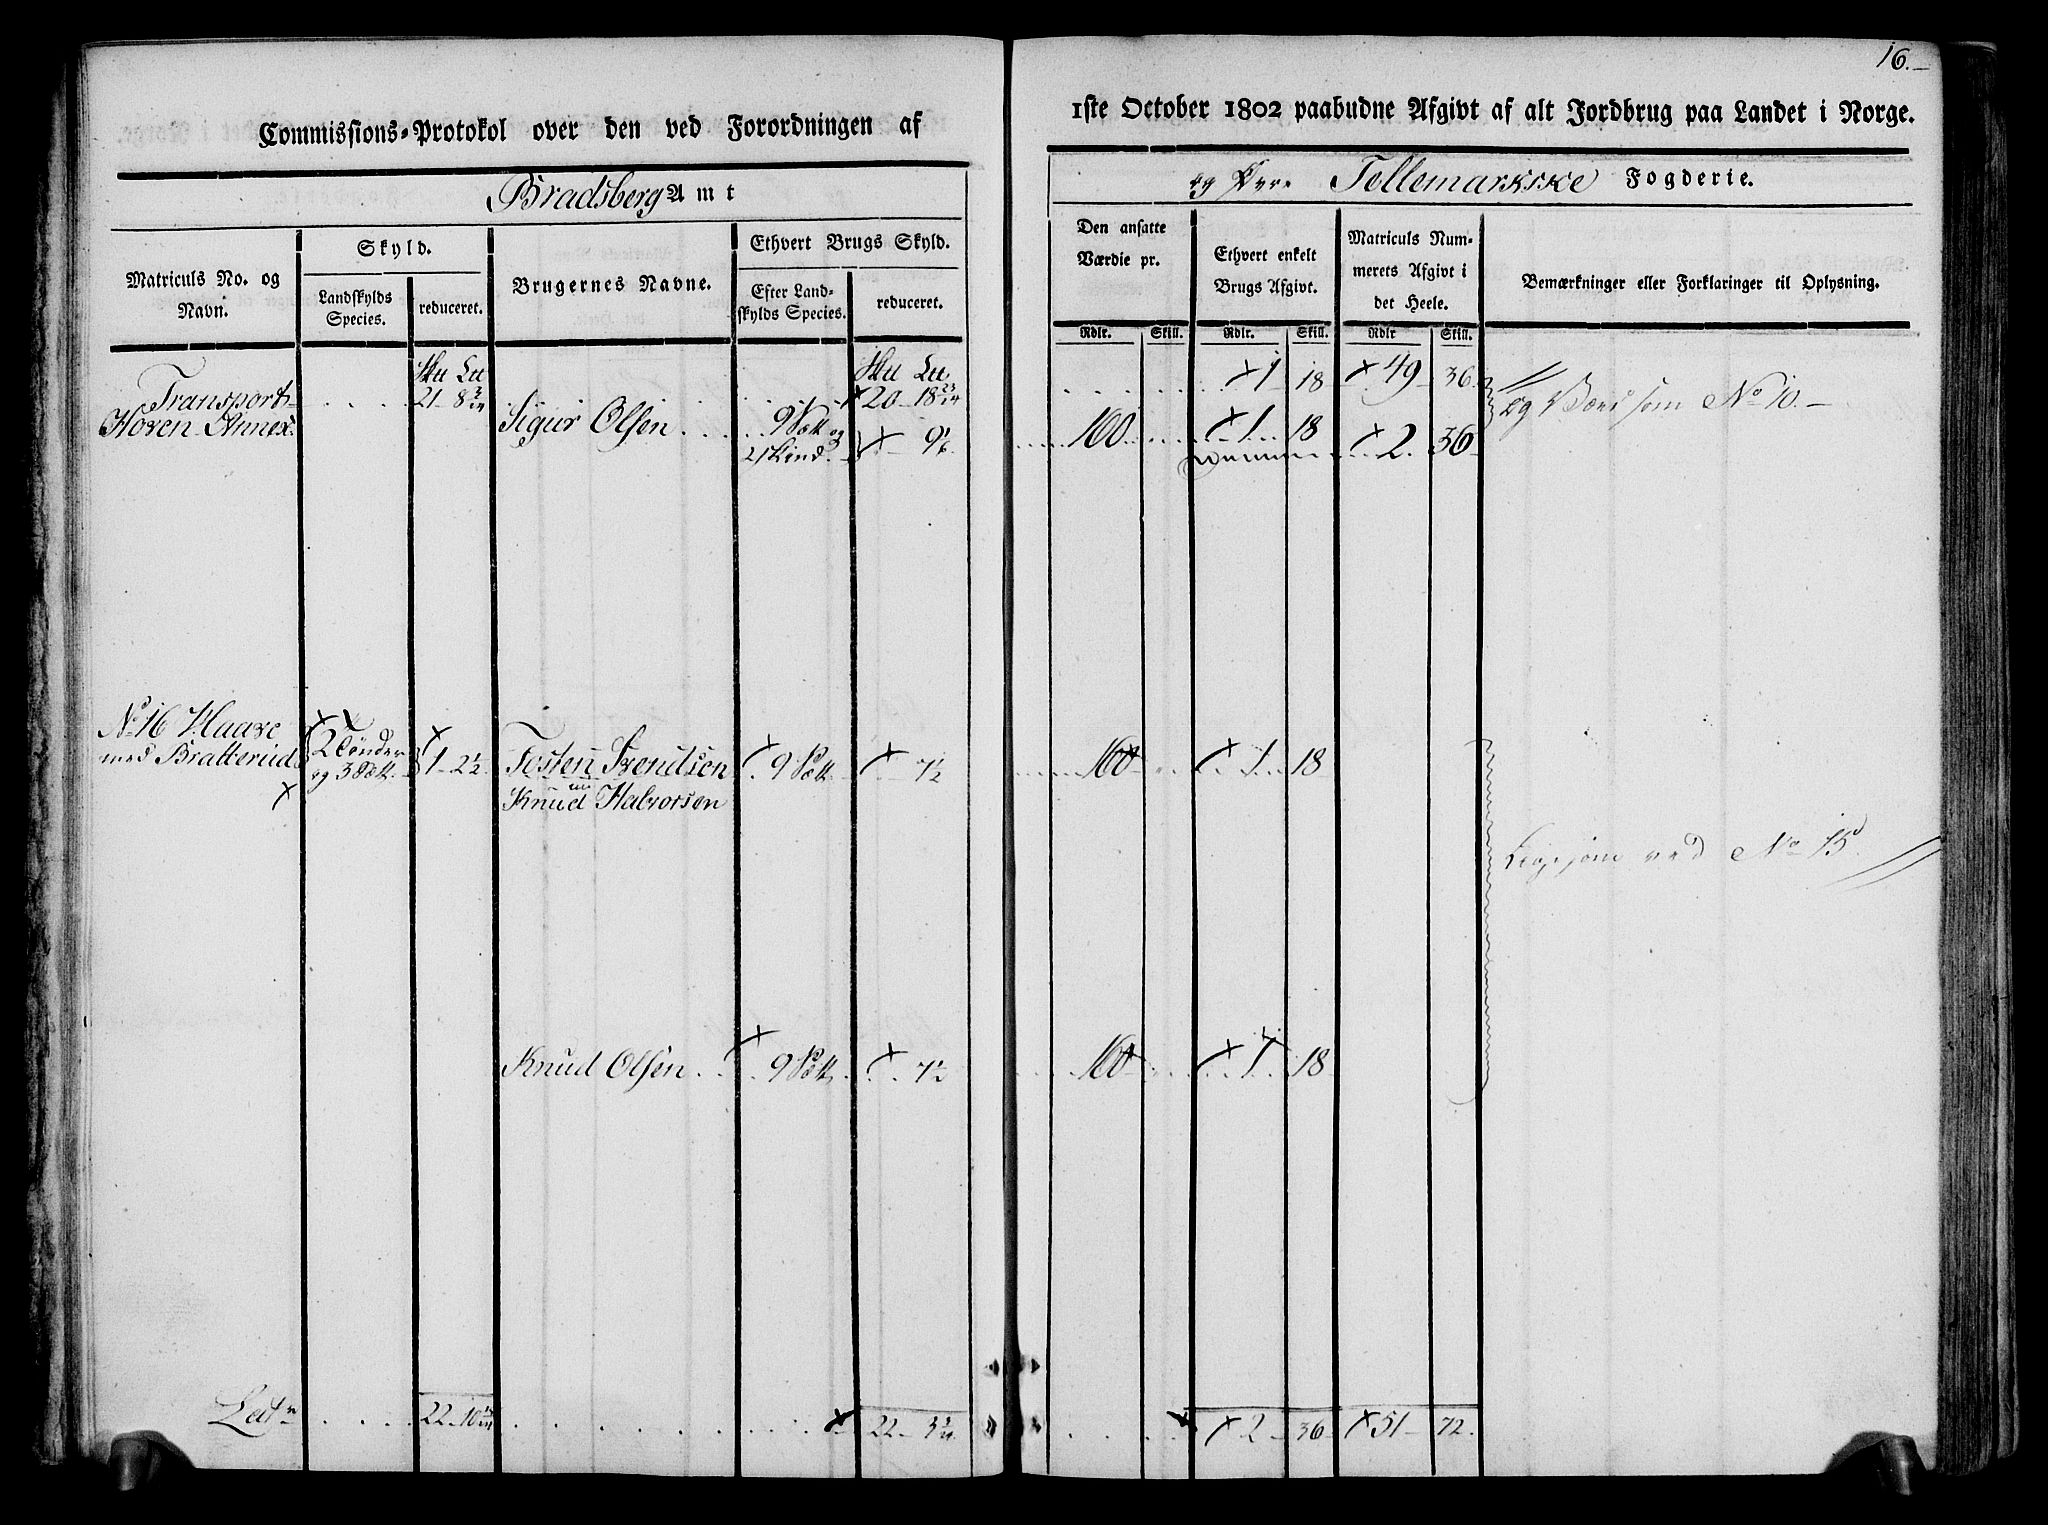 16.
Commissions-Protokol over den ved Forordningen af
1ste October 1802 paabudne Afgivt af alt Jordbrug paa Landet i Norge.
Bradsberg Amt
og Øvre Tellemarkske Fogderie.
Matriculs No. og Navn.
Skyld.
Landskylds Species.
reduceret.
Brugernes Navne.
Ethvert Brugs Skyld.
Efter Landskylds Species.
reduceret.
Den ansatte Værdie pr.
Rdlr. Skill.
Ethvert enkelt Brugs Afgivt.
Rdlr. Skill.
Matriculs Nummerets Afgivt i det Heele.
Rdlr Skill.
Bemærkninger eller Forklaringer til Oplysning.
Transport 21 8 20 18 23/24 1 18 49 36
Hoven Annex Sigur Olsen 9 Sætt og 2 Skind 9 1/6 160 1 18 2 36
som No 10.
No 16 Haave
med Bratterud 2 Tønder og 3 Sætt. 1 2 1/2 Tosten Svendsen 9 Sætt 7 1/2 160 1 18
Knud Halvorsen
ved No 15
Knud Olsen 9 Sætt 7 1/2 160 1 18
Lat 22 10 22 3 2 36 51 72